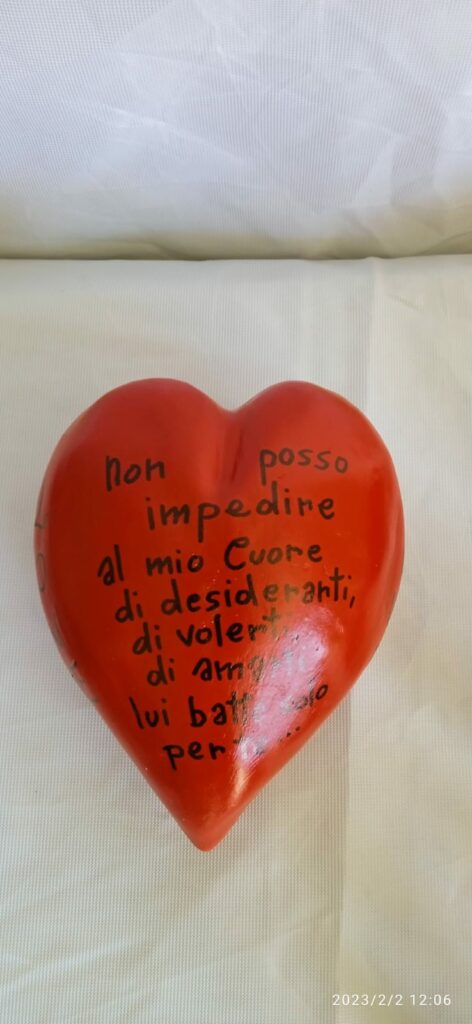 non posso
impedire
al mio Cuore
di desideranti,
di volerti
di amarti
lui batte solo
per te...
2023/2/2 12:06